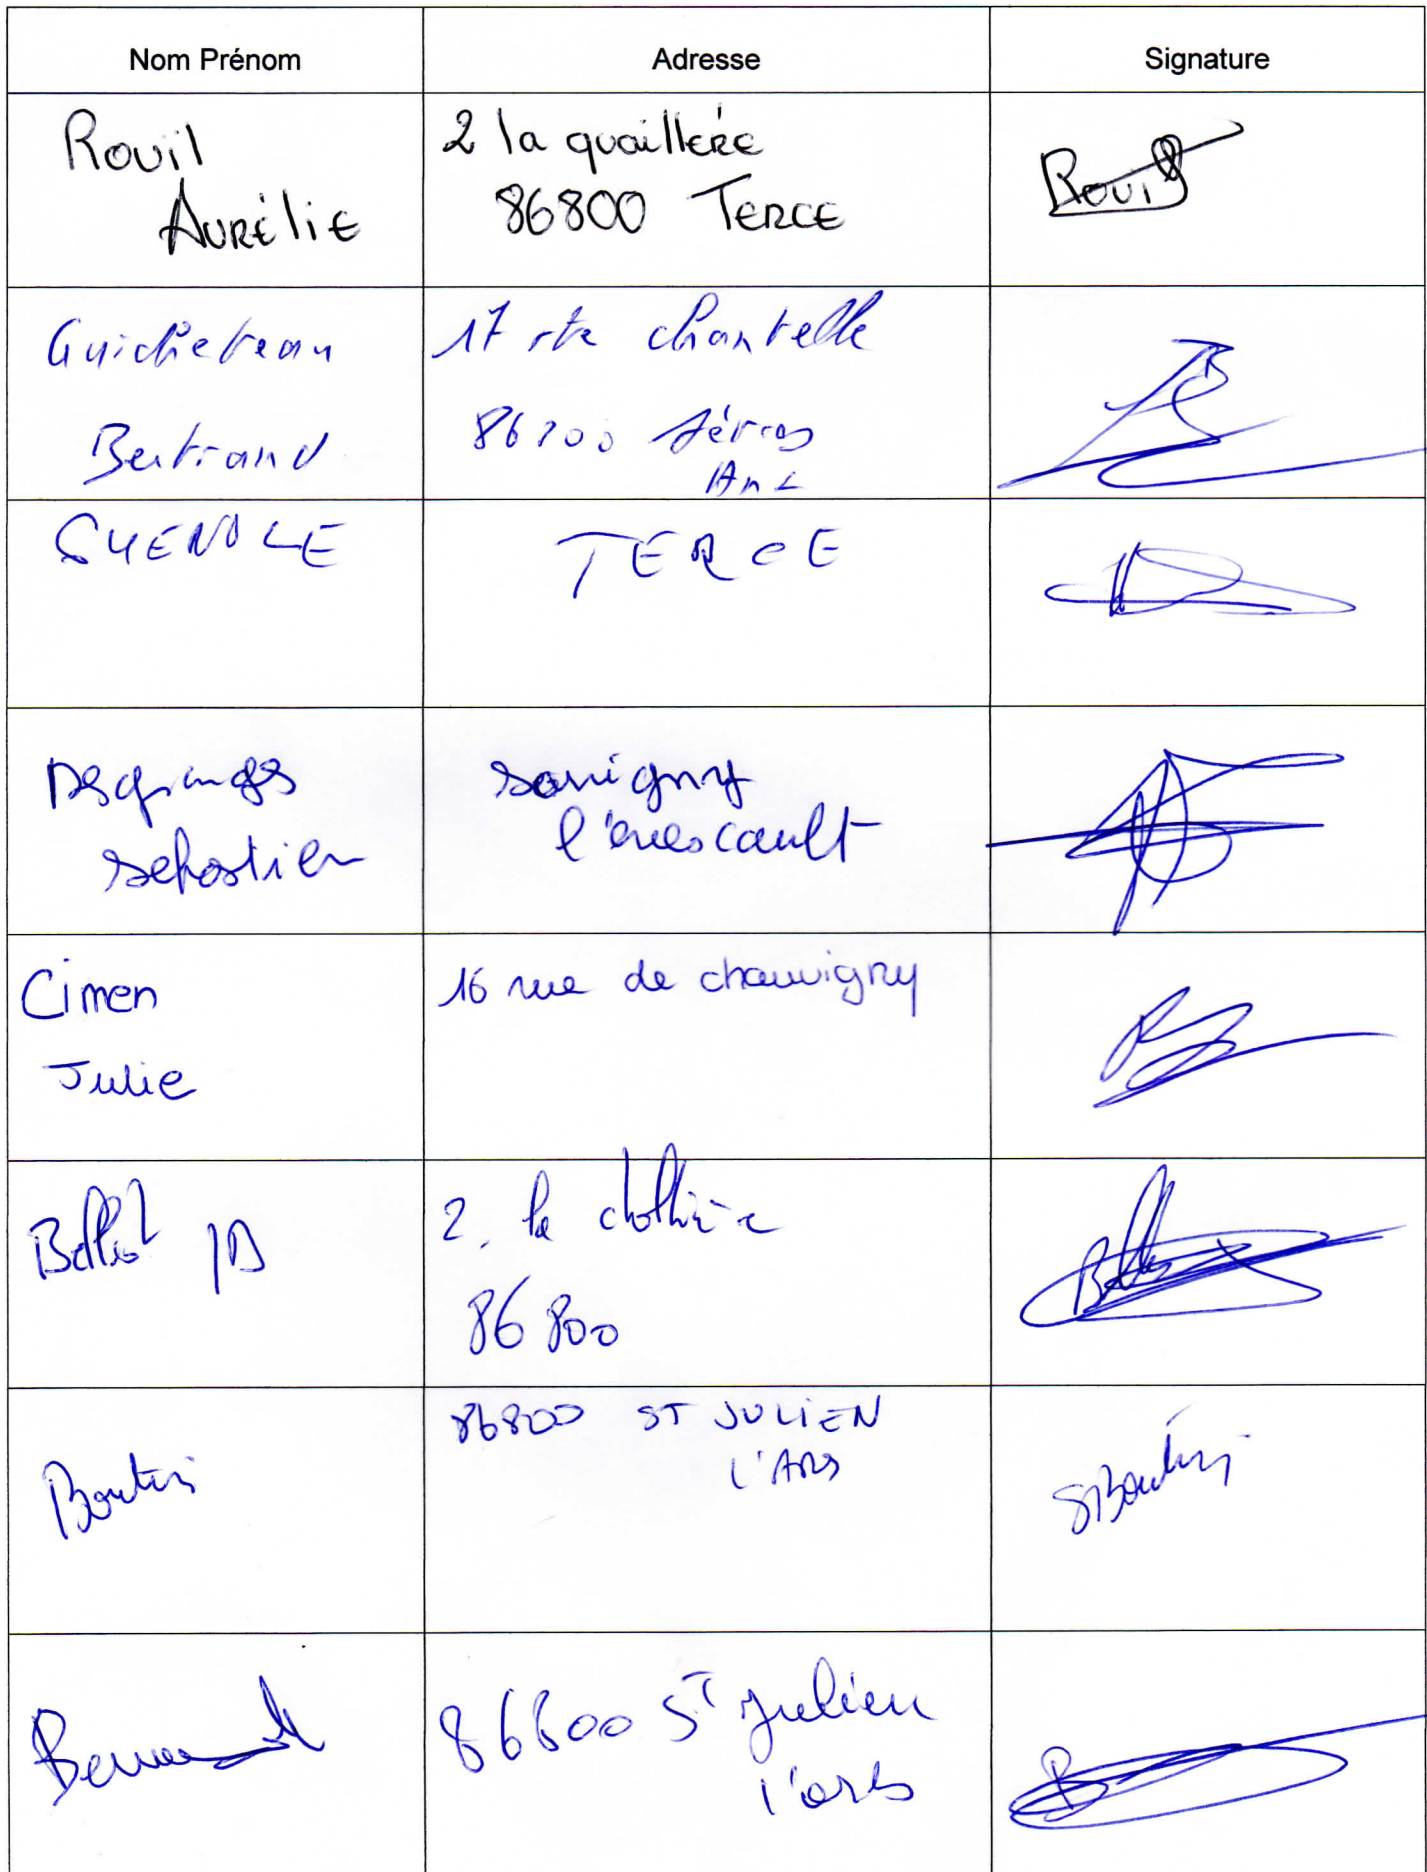 Nom Prénom
Adresse
Signature
Rouil
Aurélie
2 la quaillere
86800 Terce
Rouil
Guicheteau
Bertrand
17 rte chantelle
86
TERCE
Desgranges
sebastien
savigny
l'evescault
Cimen
Julie
16 rue de chauvigny
2. la
86 800
Boutin
86800 ST JULIEN
L'ARS
SBoutin
86800 ST Julien
l'ars